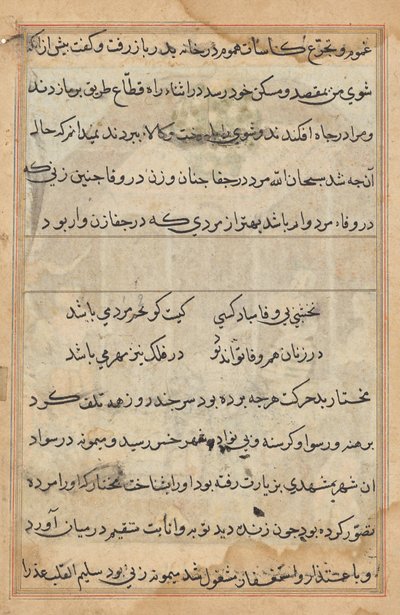 غموم و تجرّع کاسات هموم در خانه پدر باز رفت و گفت پیش از آنکه
شوی من بمقصد و مسکن خود رسد در اثناء راه قطّاع طریق بر ما زدند
و مرا در چاه افکندند و شوی را با رخت و کالا ببردند نمیدانم که حال
آن چه شد سبحان الله مرد در جفا چنان و زن در وفا چنین زنی که
در وفا مردوار باشد بهتر از مردی که در جفا زن وار بود
نخشبی بی وفا مباد کسی کیست کو نحر مردی باشد
در زنان هم وفا تواند بود در فلک نیز مهرمی باشد
مختار بدحرکت هرچه بوده بود سر چند روز همه تلف کرد
برهنه و رسوا و گرسنه و بی نوا در شهر خسر رسید و میمونه در سواد
آن شهر بمشهدی بزیارت رفته بود او را بشناخت مختار که او را مرده
تصوّر کرده بود چون زنده دید توبه و انابت مستقیم در میان آورد
و باعتذار و استغفار مشغول شد میمونه زنی بود سلیم القلب عذر او